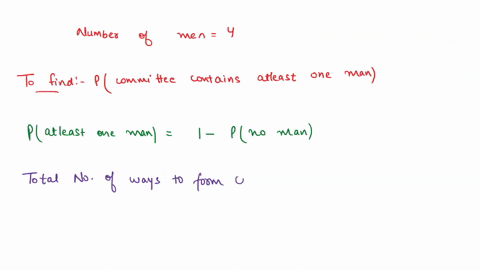 Number of men = 4
To find:- P(committee contains atleast one man)
P(atleast one man) = 1 - P(no man)
Total No. of ways to form